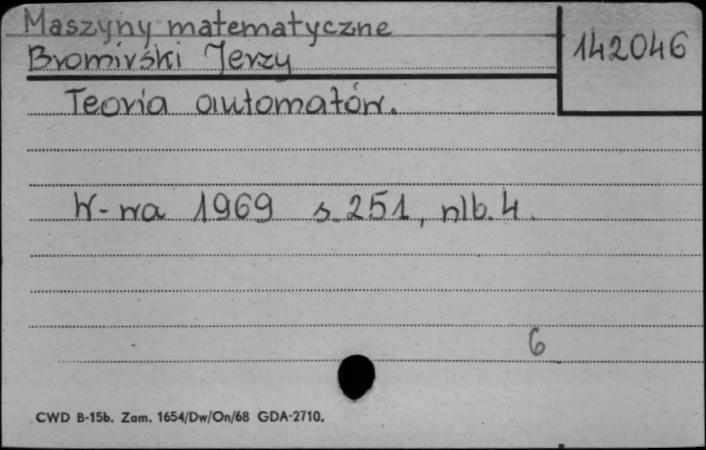 Maszyny matematyczne
142046
Bromirski Jerzy
Teoria automatów.
W-wa 1969 s. 251, nlb. 4.
6
CWD B-15b. Zam. 1654/Dw/On/68 GDA-2710.